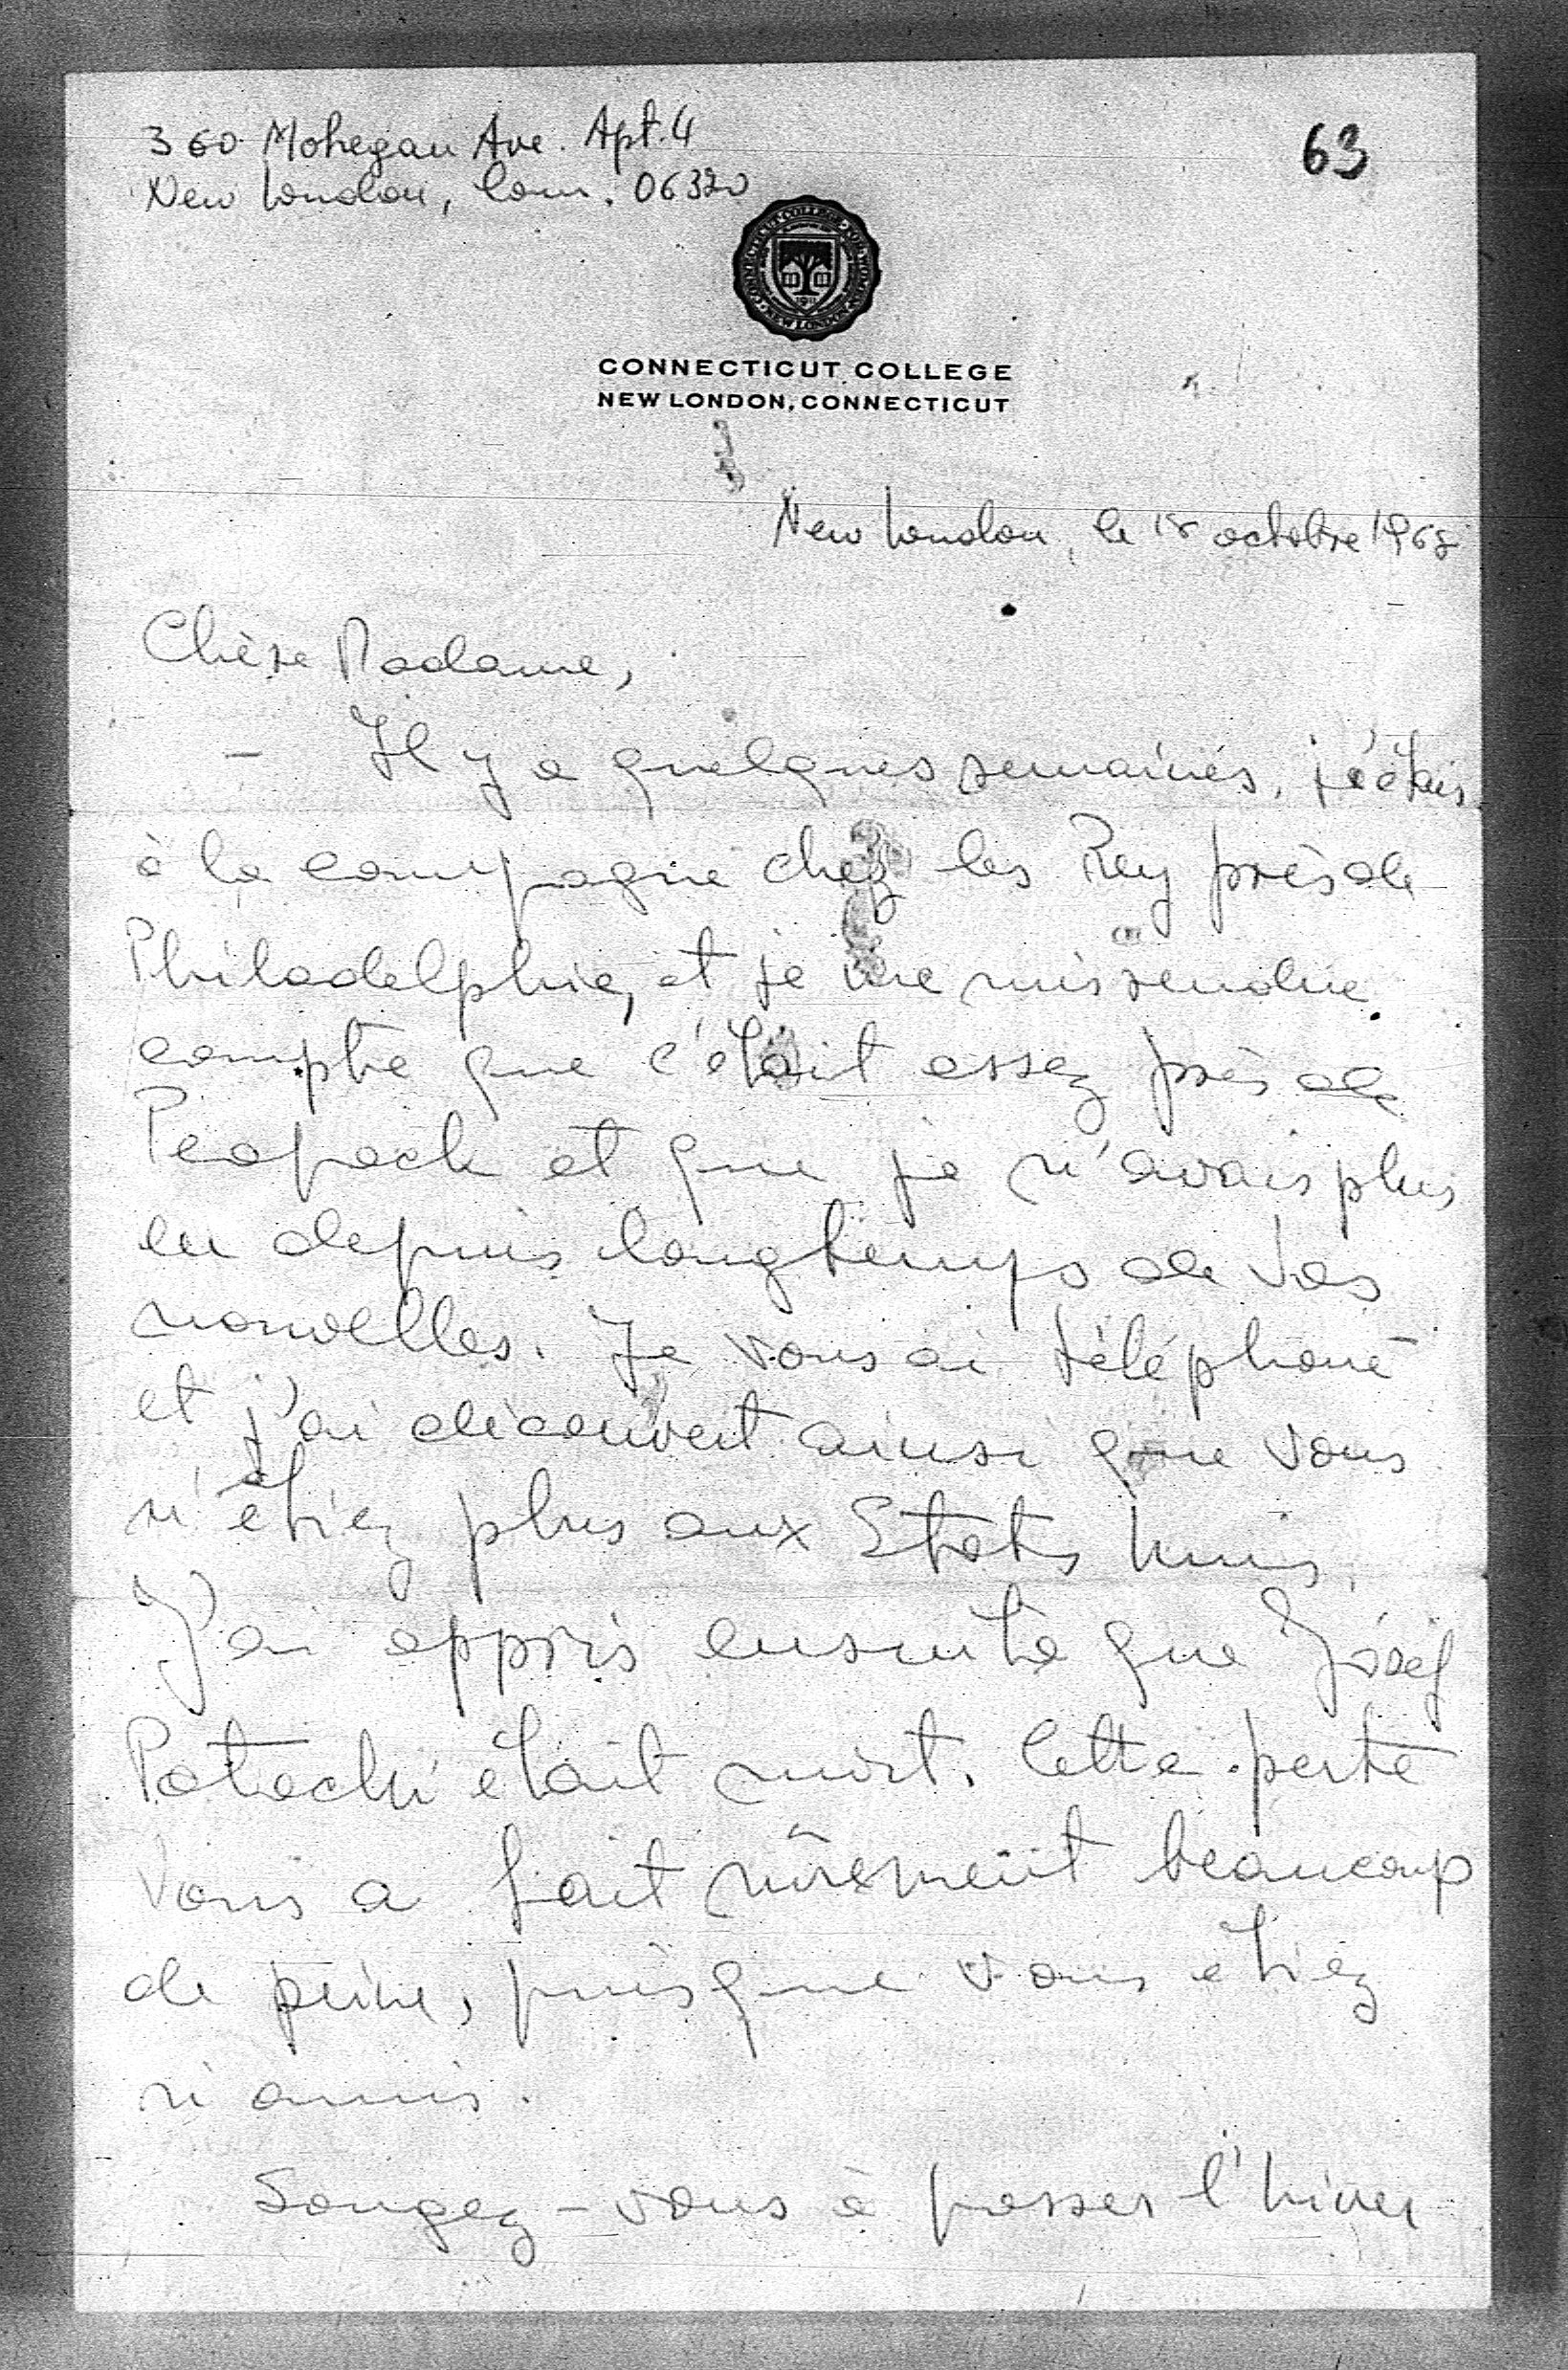 360 Mohegan Ave. Apt. 4
63
New London, Conn. 06320
CONNECTICUT COLLEGE FOR WOMEN
1911
NEW LONDON
CONNECTICUT COLLEGE
NEW LONDON, CONNECTICUT
New London, le 18 octobre 1968
Chère Madame,
- Il y a quelques semaines, j'étais
à la campagne chez les Rey près de
Philadelphie, et je me suis rendue
compte que c'était assez près de
Peapack et que je n'avais plus
eu depuis longtemps de vos
nouvelles. Je vous ai téléphoné
et j'ai découvert ainsi que vous
n'étiez plus aux Etats Unis.
J'ai appris ensuite que Józef
Potocki était mort. Cette perte
vous a fait sûrement beaucoup
de peine, puisque vous étiez
si amis.
Songez-vous à passer l'hiver